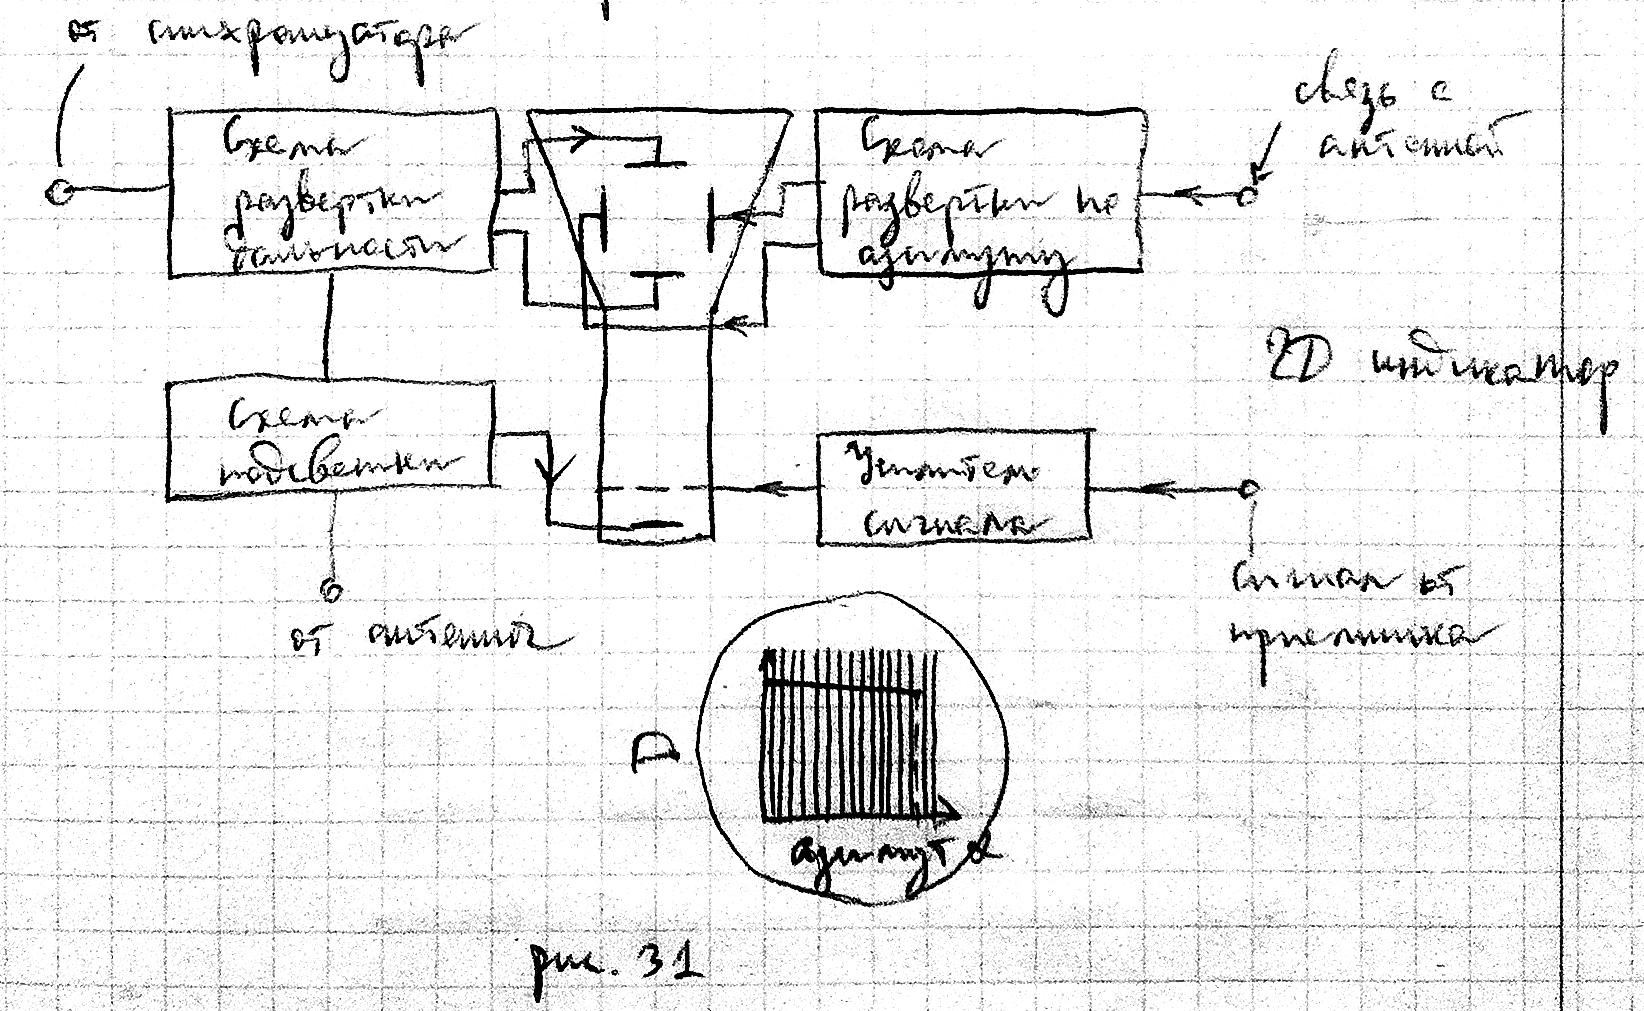 от синхронизатора
Схема
развертки
дальности
Схема
развертки по
азимуту
связь с
антенной
2D индикатор
Схема
подсветки
Усилитель
сигнала
от антенны
Сигнал от
приемника
D
азимут α
рис. 31